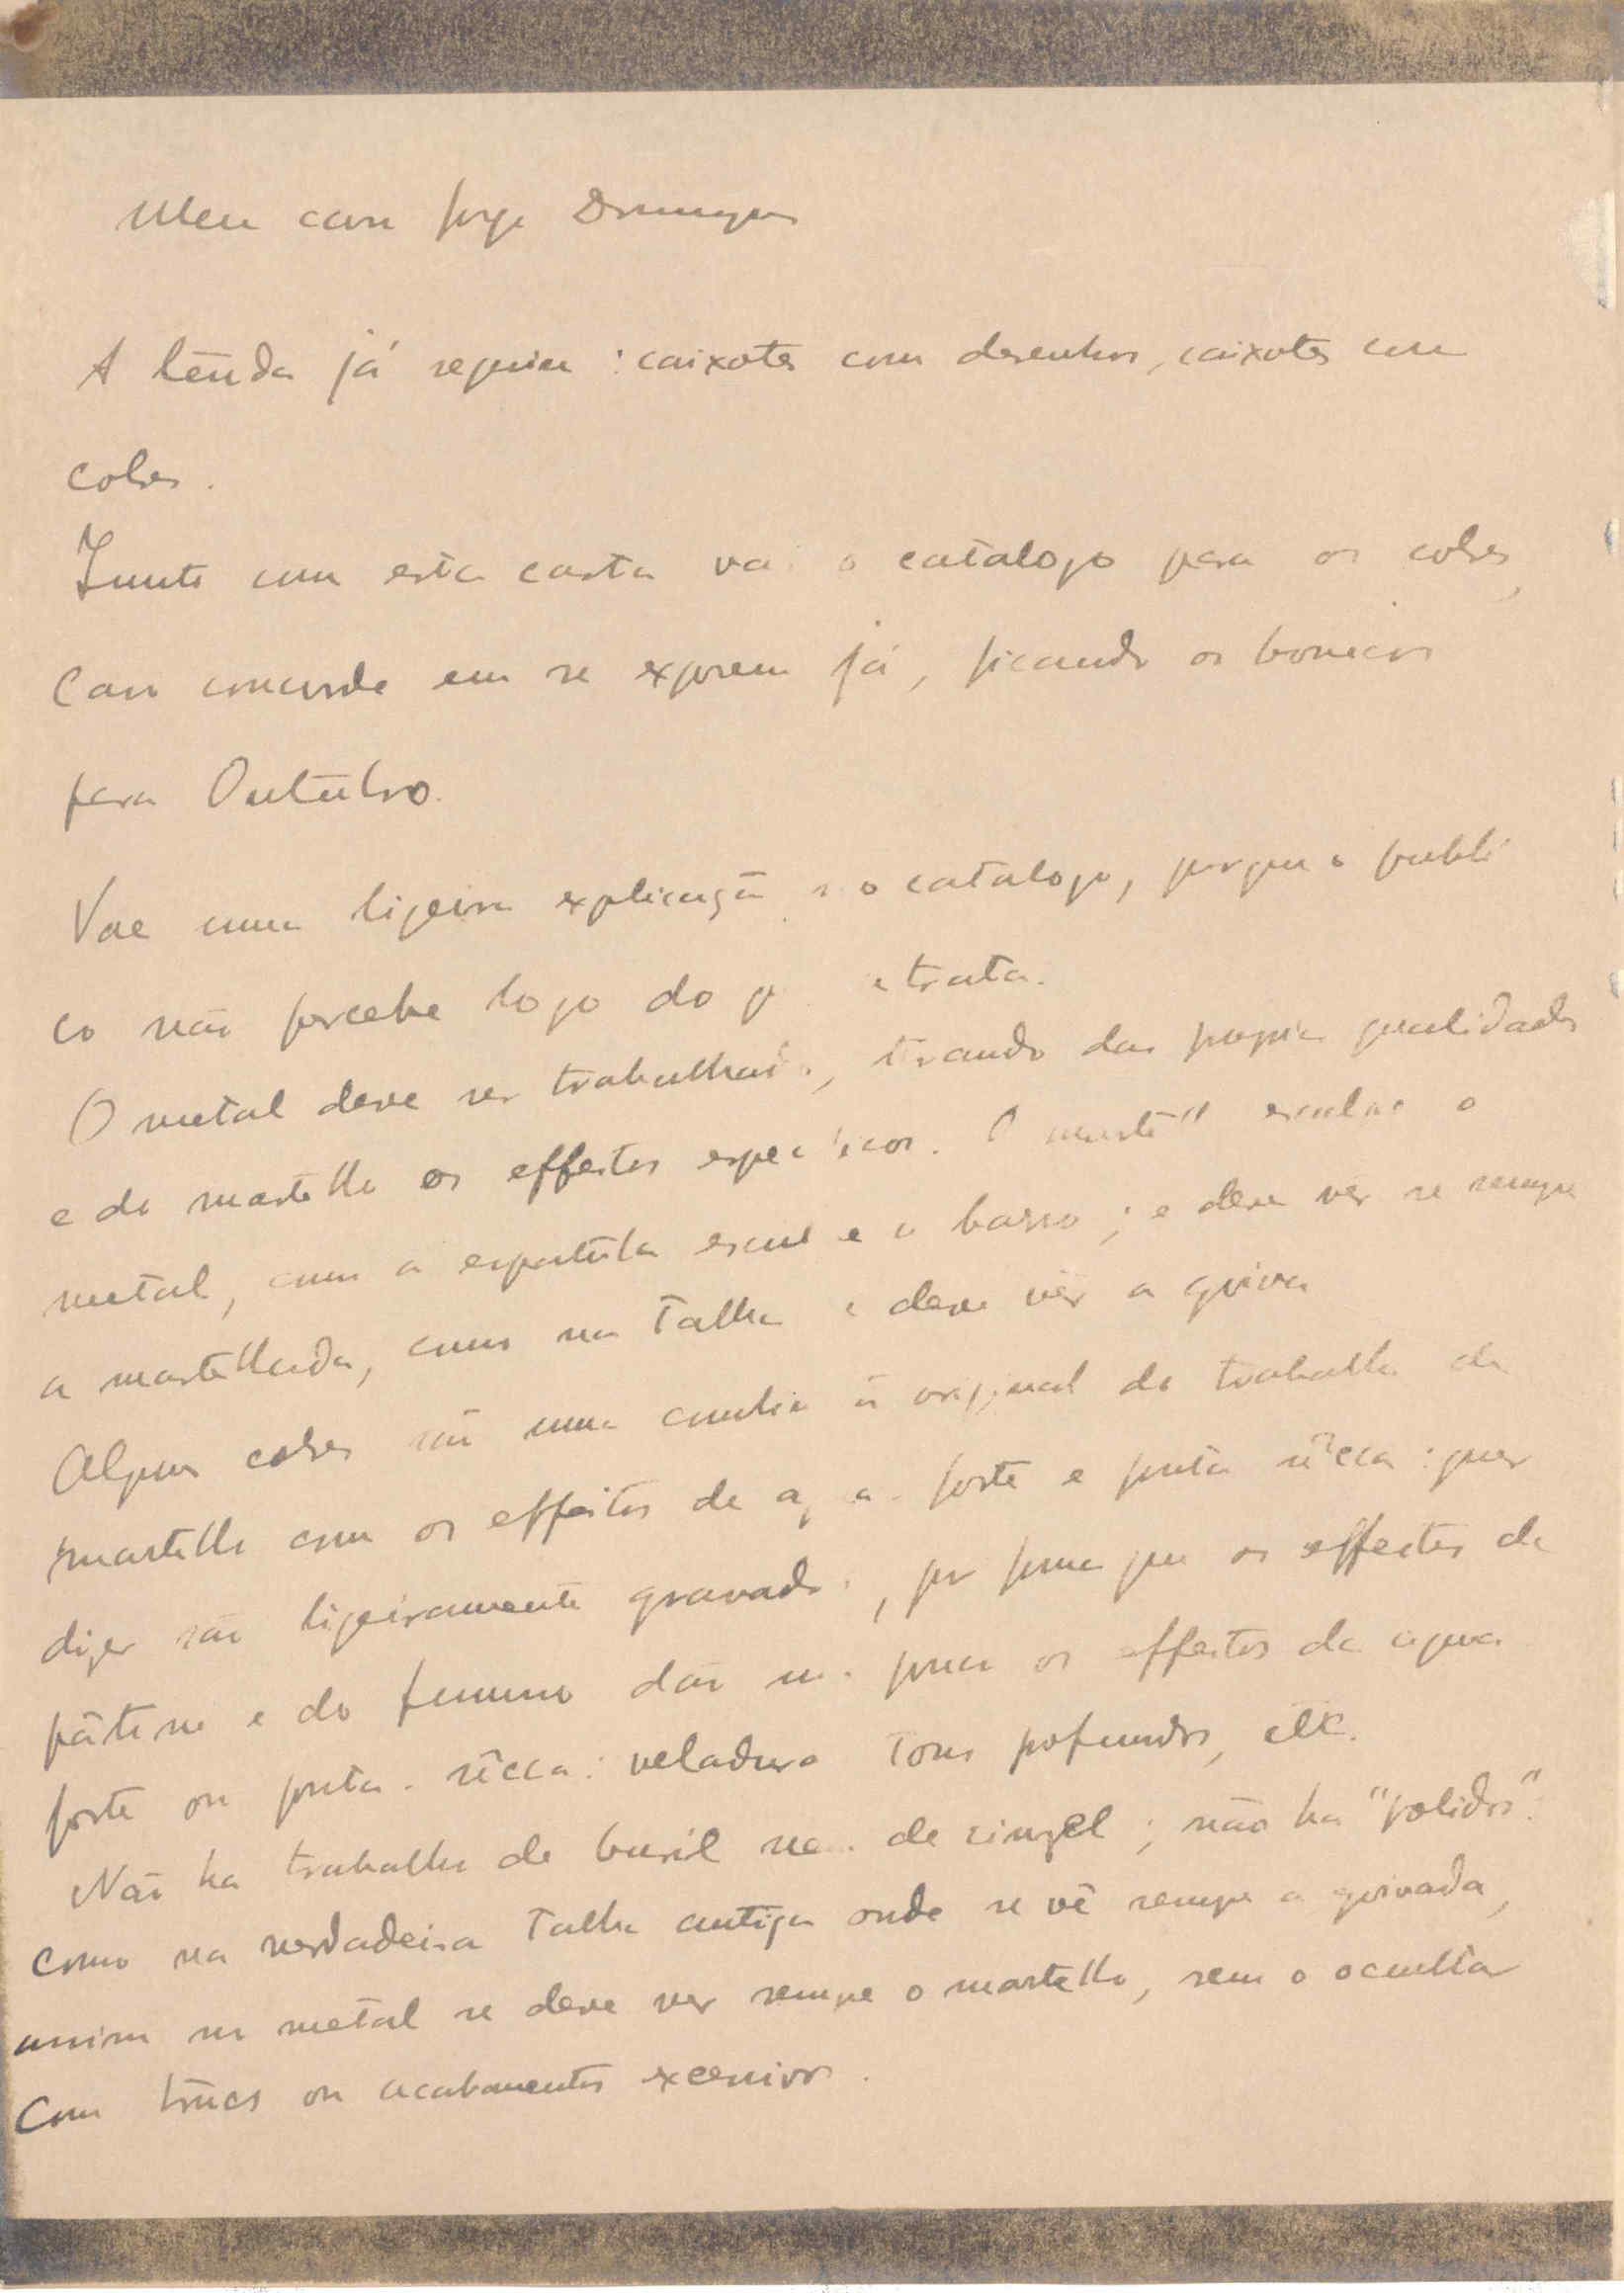 Meu caro Jorge Domingues
A tenda já seguiu : caixotes com desenhos, caixotes com
cobres.
Junto com esta carta vai o catalogo para os cobres,
Caso concorde em se exporem já, ficando os bonecos
para Outubro.
Vae uma ligeira explicação no catalogo, porque o publi
co não percebe logo do q trata.
O metal deve ser trabalhado, tirando das proprias qualidades
e do martello os effeitos especificos. O martello esculpe o
metal, como a espatula esculpe o barro ; e deve ver se sempre
a martellada, como na talha se deve vêr a goiva
Alguns cobres são uma original do trabalho de
martello com os effeitos de agua forte e ponta sêcca : quer
dizer são ligeiramente gravados, que os effeitos da
pátine e do fumo dão um pouco os effeitos da agua
forte ou ponta sêcca : veladuras tons profundos, etc.
Não ha trabalho de buril nem de cinzel ; não ha "polidos".
Como na verdadeira talha antiga onde se vê sempre a goivada,
assim no metal se deve ver sempre o martello, sem o occultar
Com trucs ou acabamentos excessivos.